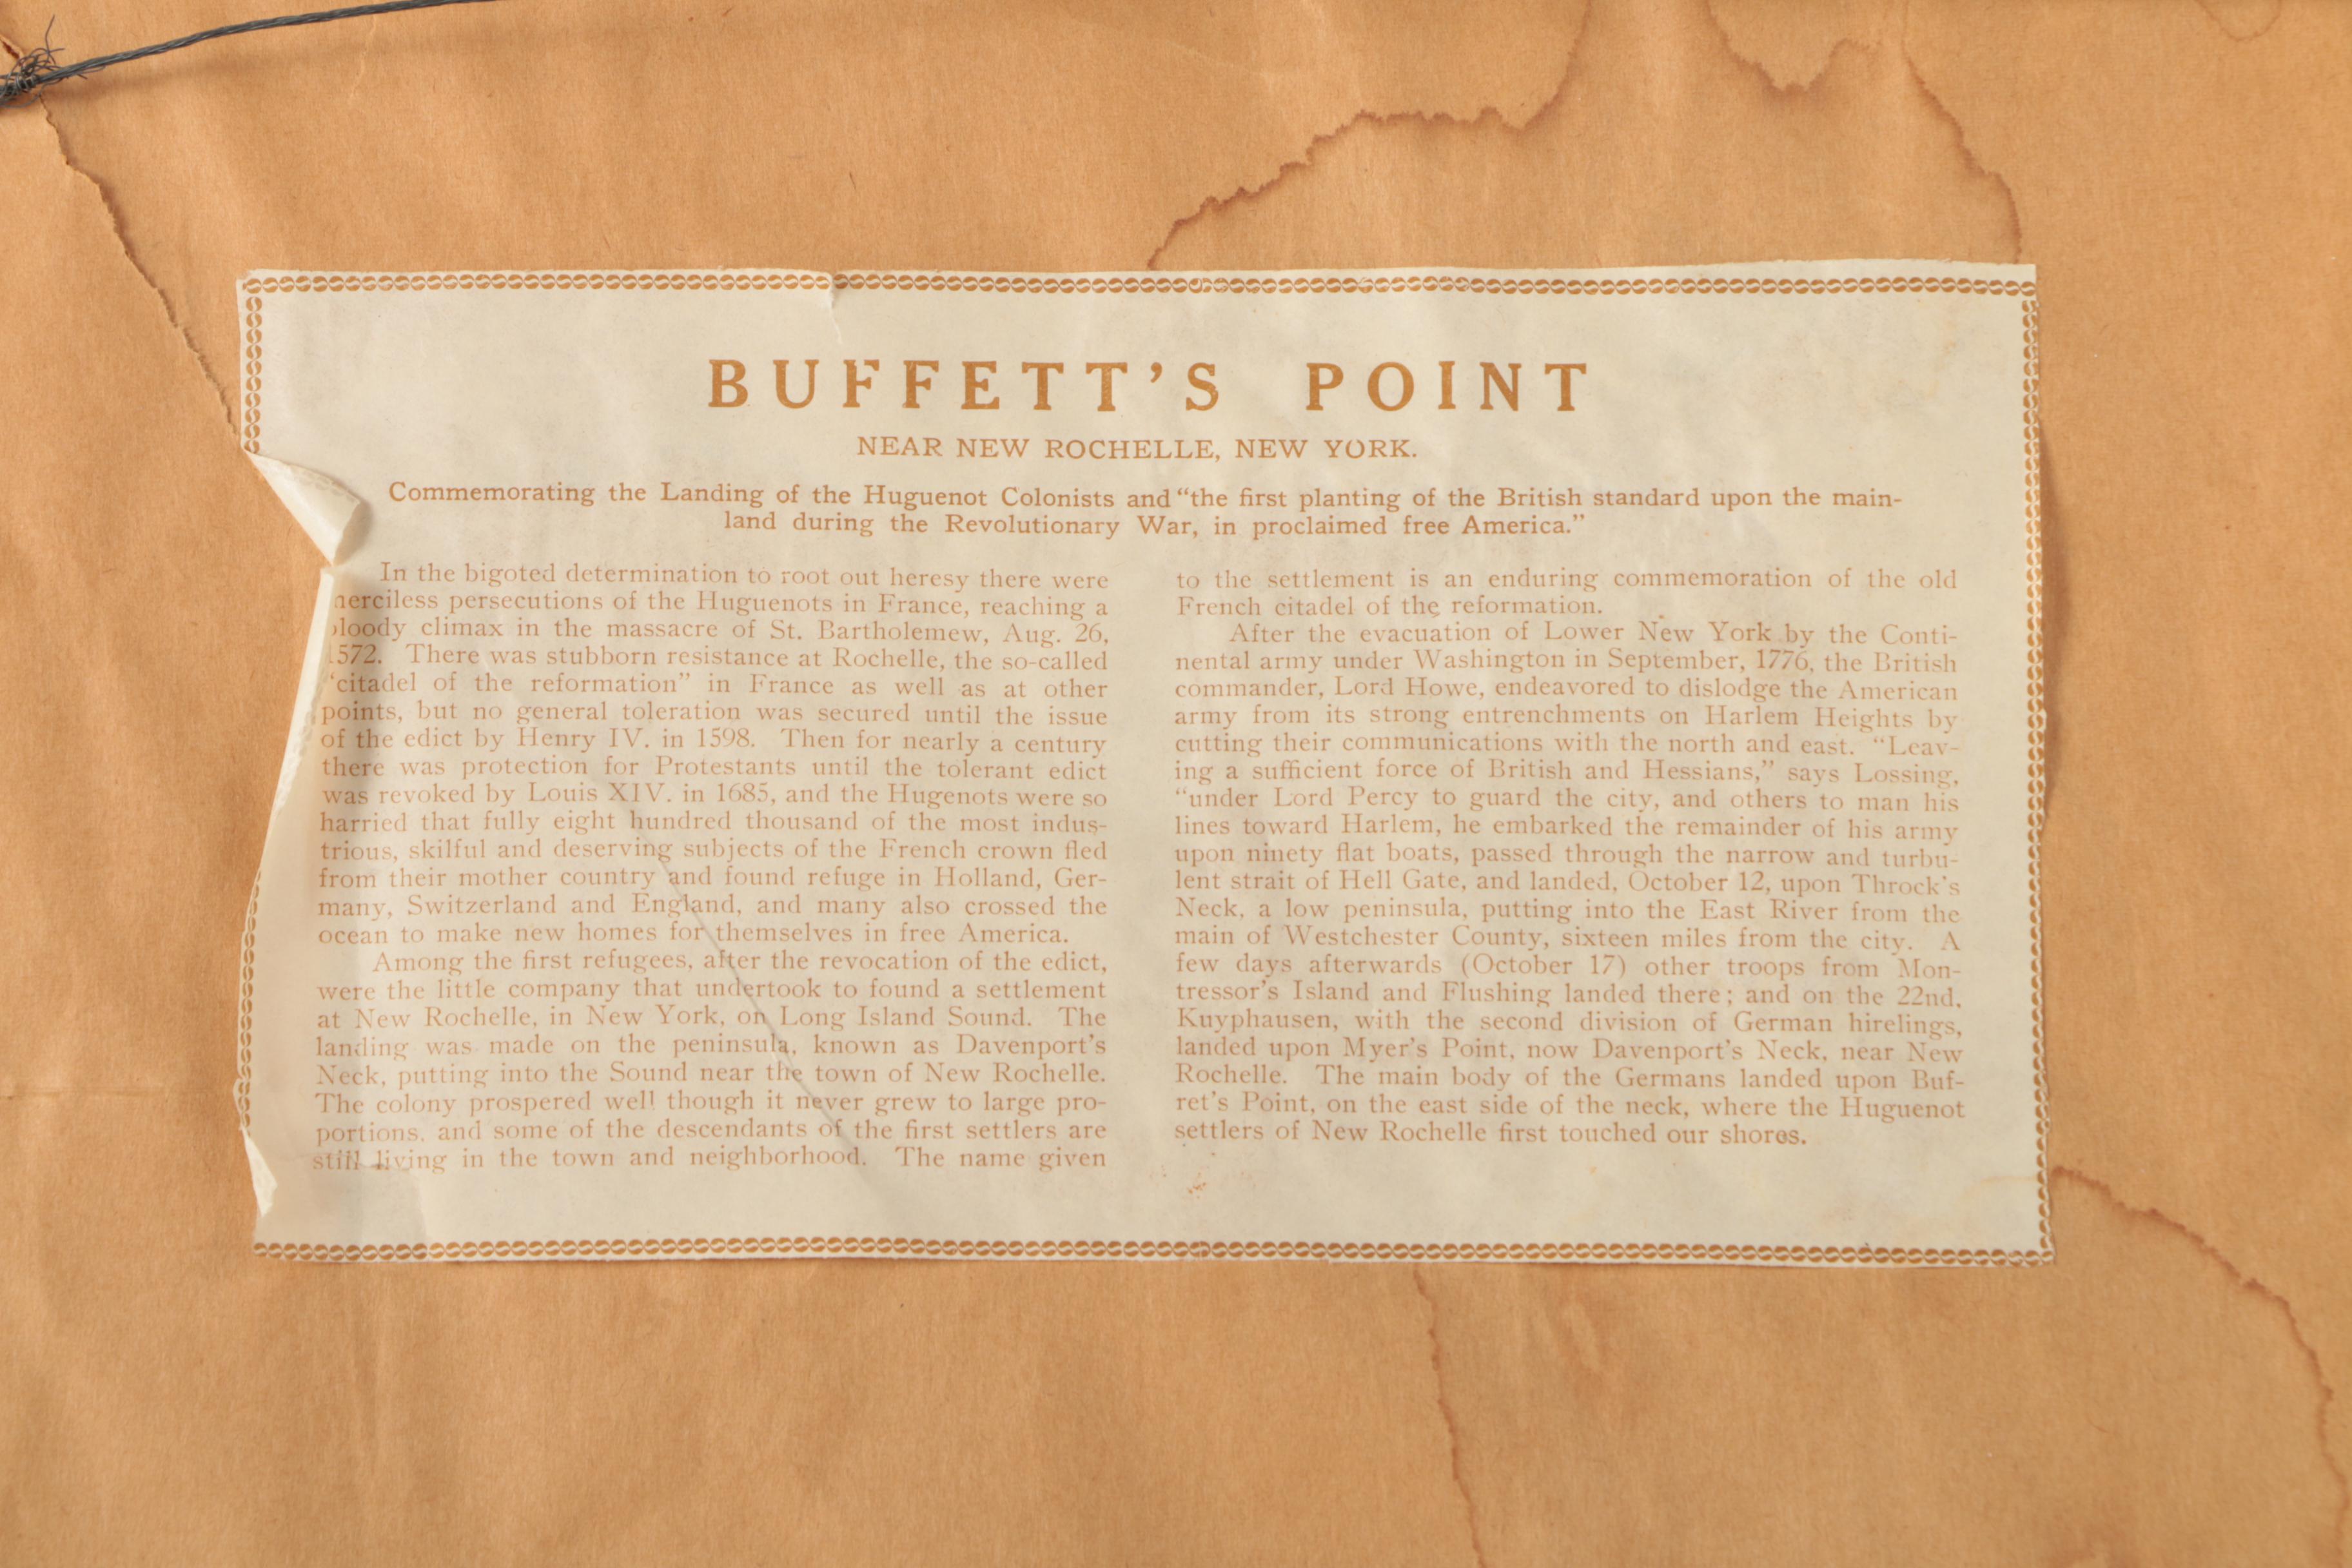 BUFFETT'S POINT
NEAR NEW ROCHELLE, NEW YORK.
Commemorating the Landing of the Huguenot Colonists and "the first planting of the British standard upon the main-
land during the Revolutionary War, in proclaimed free America."
In the bigoted determination to root out heresy there were
merciless persecutions of the Huguenots in France, reaching a
bloody climax in the massacre of St. Bartholemew, Aug. 26,
1572. There was stubborn resistance at Rochelle, the so-called
"citadel of the reformation" in France as well as at other
points, but no general toleration was secured until the issue
of the edict by Henry IV. in 1598. Then for nearly a century
there was protection for Protestants until the tolerant edict
was revoked by Louis XIV. in 1685, and the Hugenots were so
harried that fully eight hundred thousand of the most indus-
trious, skilful and deserving subjects of the French crown fled
from their mother country and found refuge in Holland, Ger-
many, Switzerland and England, and many also crossed the
ocean to make new homes for themselves in free America.
Among the first refugees, after the revocation of the edict,
were the little company that undertook to found a settlement
at New Rochelle, in New York, on Long Island Sound. The
landing was made on the peninsula, known as Davenport's
Neck, putting into the Sound near the town of New Rochelle.
The colony prospered well though it never grew to large pro-
portions, and some of the descendants of the first settlers are
still living in the town and neighborhood. The name given
to the settlement is an enduring commemoration of the old
French citadel of the reformation.
After the evacuation of Lower New York by the Conti-
nental army under Washington in September, 1776, the British
commander, Lord Howe, endeavored to dislodge the American
army from its strong entrenchments on Harlem Heights by
cutting their communications with the north and east. "Leav-
ing a sufficient force of British and Hessians," says Lossing,
"under Lord Percy to guard the city, and others to man his
lines toward Harlem, he embarked the remainder of his army
upon ninety flat boats, passed through the narrow and turbu-
lent strait of Hell Gate, and landed, October 12, upon Throck's
Neck, a low peninsula, putting into the East River from the
main of Westchester County, sixteen miles from the city. A
few days afterwards (October 17) other troops from Mon-
tressor's Island and Flushing landed there; and on the 22nd,
Kuyphausen, with the second division of German hirelings,
landed upon Myer's Point, now Davenport's Neck, near New
Rochelle. The main body of the Germans landed upon Buf-
ret's Point, on the east side of the neck, where the Huguenot
settlers of New Rochelle first touched our shores.